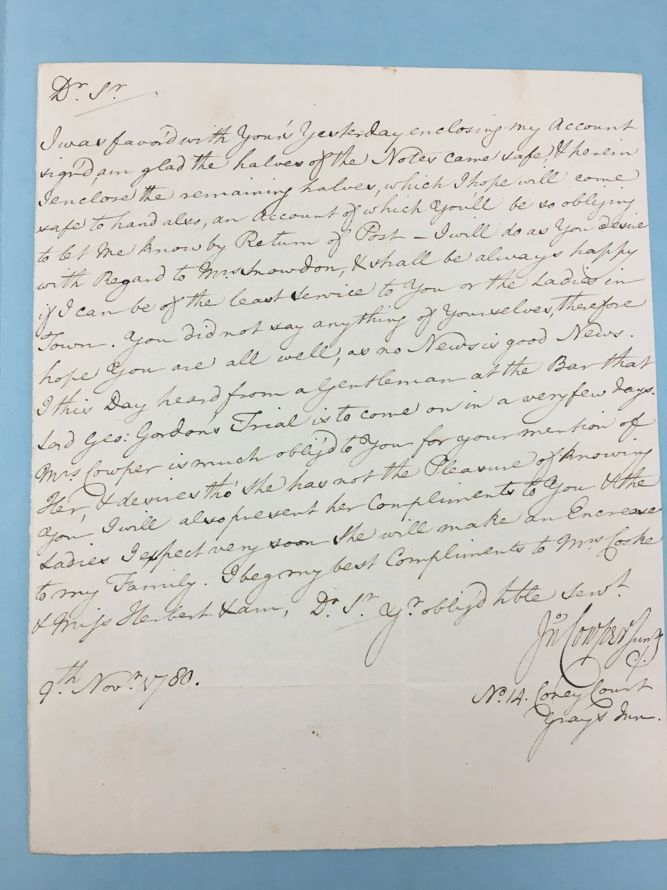 Dr. Sr.
I was favor'd with Your's Yesterday enclosing my Account
sign'd, am glad the halves of the Notes came safe, & herein
I enclose the remaining halves, which I hope will come
safe to hand also, an Account of which You'll be so obliging
to let Me know by Return of Post – I will do as You desire
with Regard to Mrs. Snowdon, & shall be always happy
if I can be of the least Service to You or the Ladies in
Town. You did not say any thing of Yourselves, therefore
hope You are all well, as no News is good News.
I this Day heard from a Gentleman at the Bar that
Lord Geo: Gordons Trial is to come on in a very few Days.
Mrs Cowper is much oblig'd to You for your mention of
Her, & desires tho' She has not the Pleasure of knowing
You, I will also present her Compliments to You & the
Ladies I expect very soon She will make an Encrease
to my Family. I beg my best Compliments to Mrs. Cooke
& Miss Herbert & am, Dr. Sr. Yr. oblig'd h'ble Servt.
Jno. Cowper Junr
9th. Novr. 1780.
No. 14. Coney Court
Grays Inn.